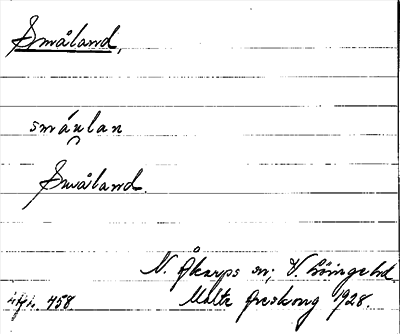 Småland,
småulan
Småland.
N. Åkarps sn; V. Göinge hd.
458 Malte Areskoug 1928.